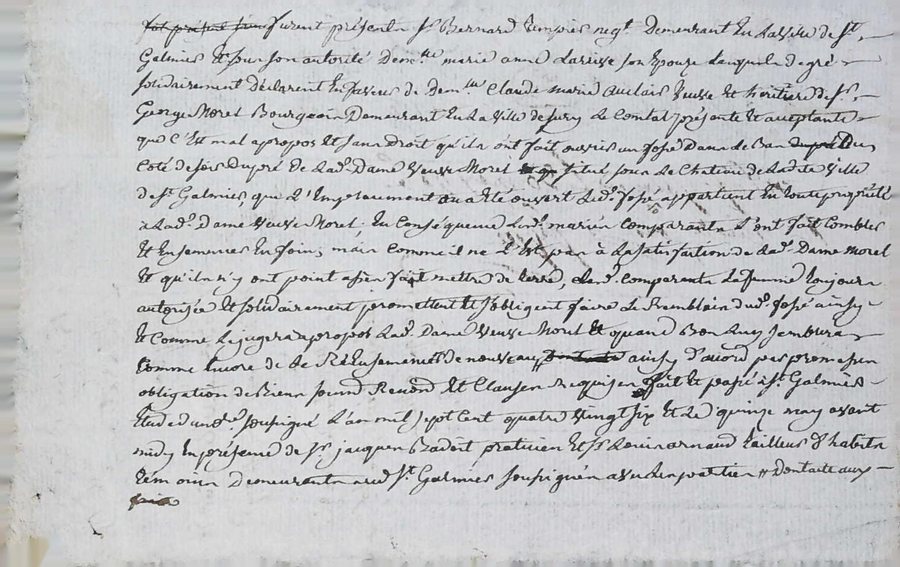 furent présents Sr. Bernard negt. Demeurant En la Ville de St.
Galmier Et sous son autorité Demlle marie anne Lareure son Epouze Laquelle de gré
solidairement déclarent En faveur de demlle Claude marie auclair Veuve Et heritiere de Sr.
George Morel Bourgeois Demeurant En La Ville de Sury Le Comtal présente Et aceptante
que C'Est mal apropos Et sans Droit qu'ils ont fait ouvrir un fossé Dans de
Coté de soir Dupré de Lade. Dame Veuve Morel situé sous Le Chateau de Ladte Ville
de St Galmier, que L'Emplacement ou a Eté ouvert Led. fossé appartient En toute propriété
à Lade. Dame Veuve Morel. En Conséquence Lesd. mariés comparants L'ont fait Combler
Et Ensemencer En foin, mais comme il ne L'Est pas à La satisfaction de Lad. Dame Morel
Et qu'ils n'y ont point assés fait mettre de terre, Lesd. comparants La femme toujours
autorisée Et solidairement promettent Et s'obligent faire Le Remblais dud. fossé ainsy
Et Comme Le jugera apropos Lad. Dame Veuve Morel Et quand Bon Luy semblera
Comme Encore de Le Réensemencer de nouveau ainsy D'acord par promesses
obligation de Biens soumd Renond Et Clauses Requises fait Et passé à St. Galmier
Etude du nore. soussigné L'an mil sept Cent quatre Vingt six Et Le quinze may avant
midy En présence de Sr. jacques Badoit praticien Et Sr Louis arnaud tailleur d'habits
temoins Demeurants aud St. Galmier soussignés avec Les parties //